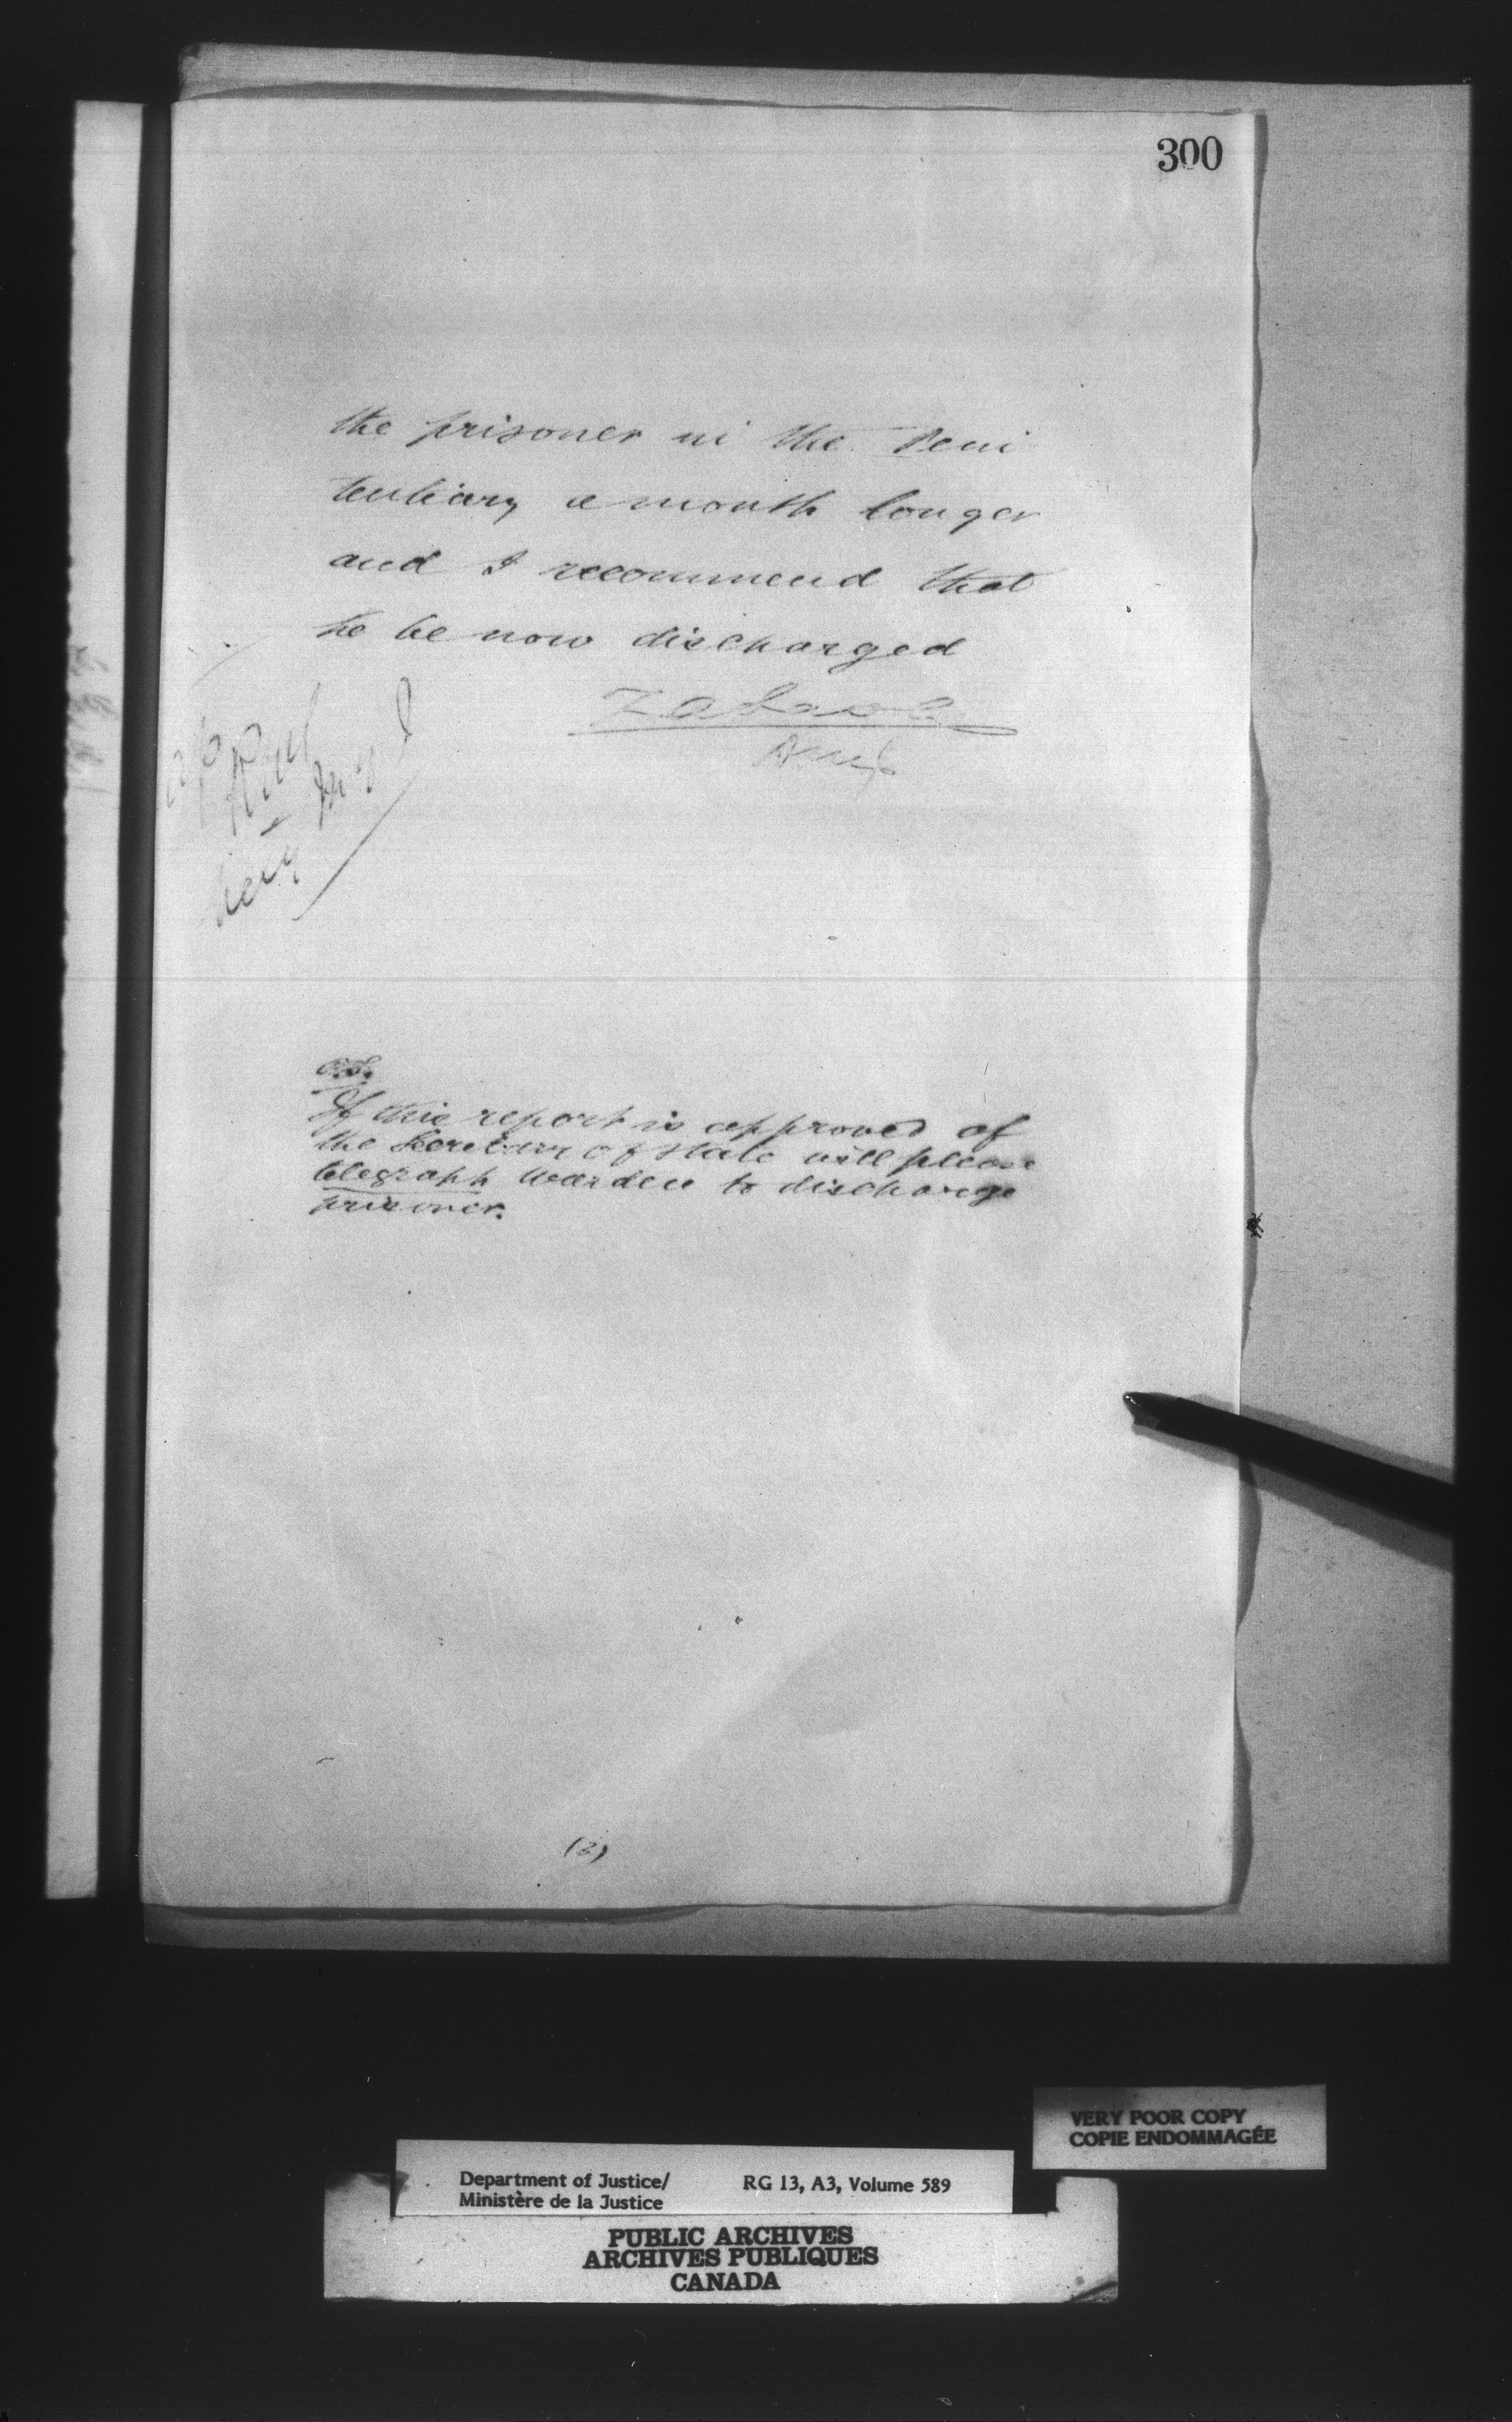 300
the prisoner in the Peni
tentiary a month longer
and I recommend that
he be now discharged
D M J
If this report is approved of
the Secretary of State will please
telegraph Warden to discharge
prisoner.
(2)
VERY POOR COPY
COPIE ENDOMMAGÉE
Department of Justice/
Ministère de la Justice
RG 13, A3, Volume 589
PUBLIC ARCHIVES
ARCHIVES PUBLIQUES
CANADA